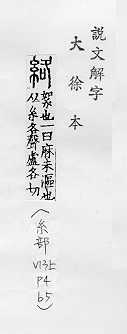 說文解字
大徐本
絡 絮也一曰麻未漚也
从糸各聲盧各切
(糸部 V13上 P4 b5)